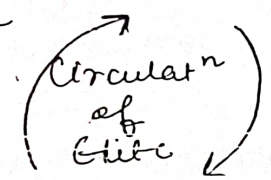 Circulatⁿ
of
Elite